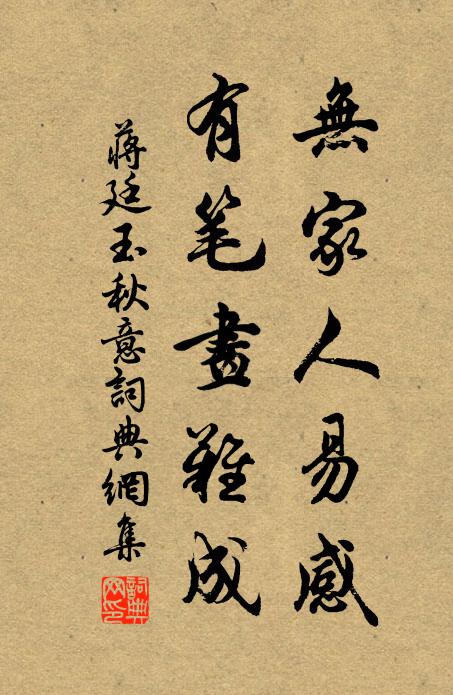 無家人易感
有笔畫難成
蔣廷玉秋意詞典網集
詞典
网印